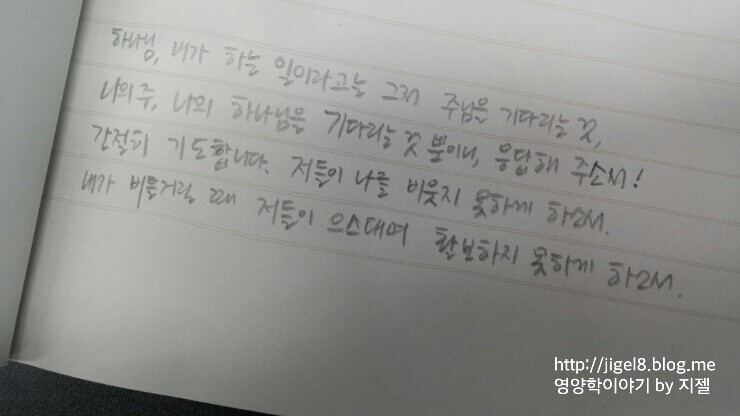 하나님, 내가 하는 일이라고는 그저 주님을 기다리는 것,
나의 주, 나의 하나님을 기다리는 것 뿐이니, 응답해 주소서!
간절히 기도합니다. 저들이 나를 비웃지 못하게 하소서.
내가 비틀거릴 때 저들이 으스대며 활보하지 못하게 하소서.
http://jigel8.blog.me
영양학이야기 by 지젤